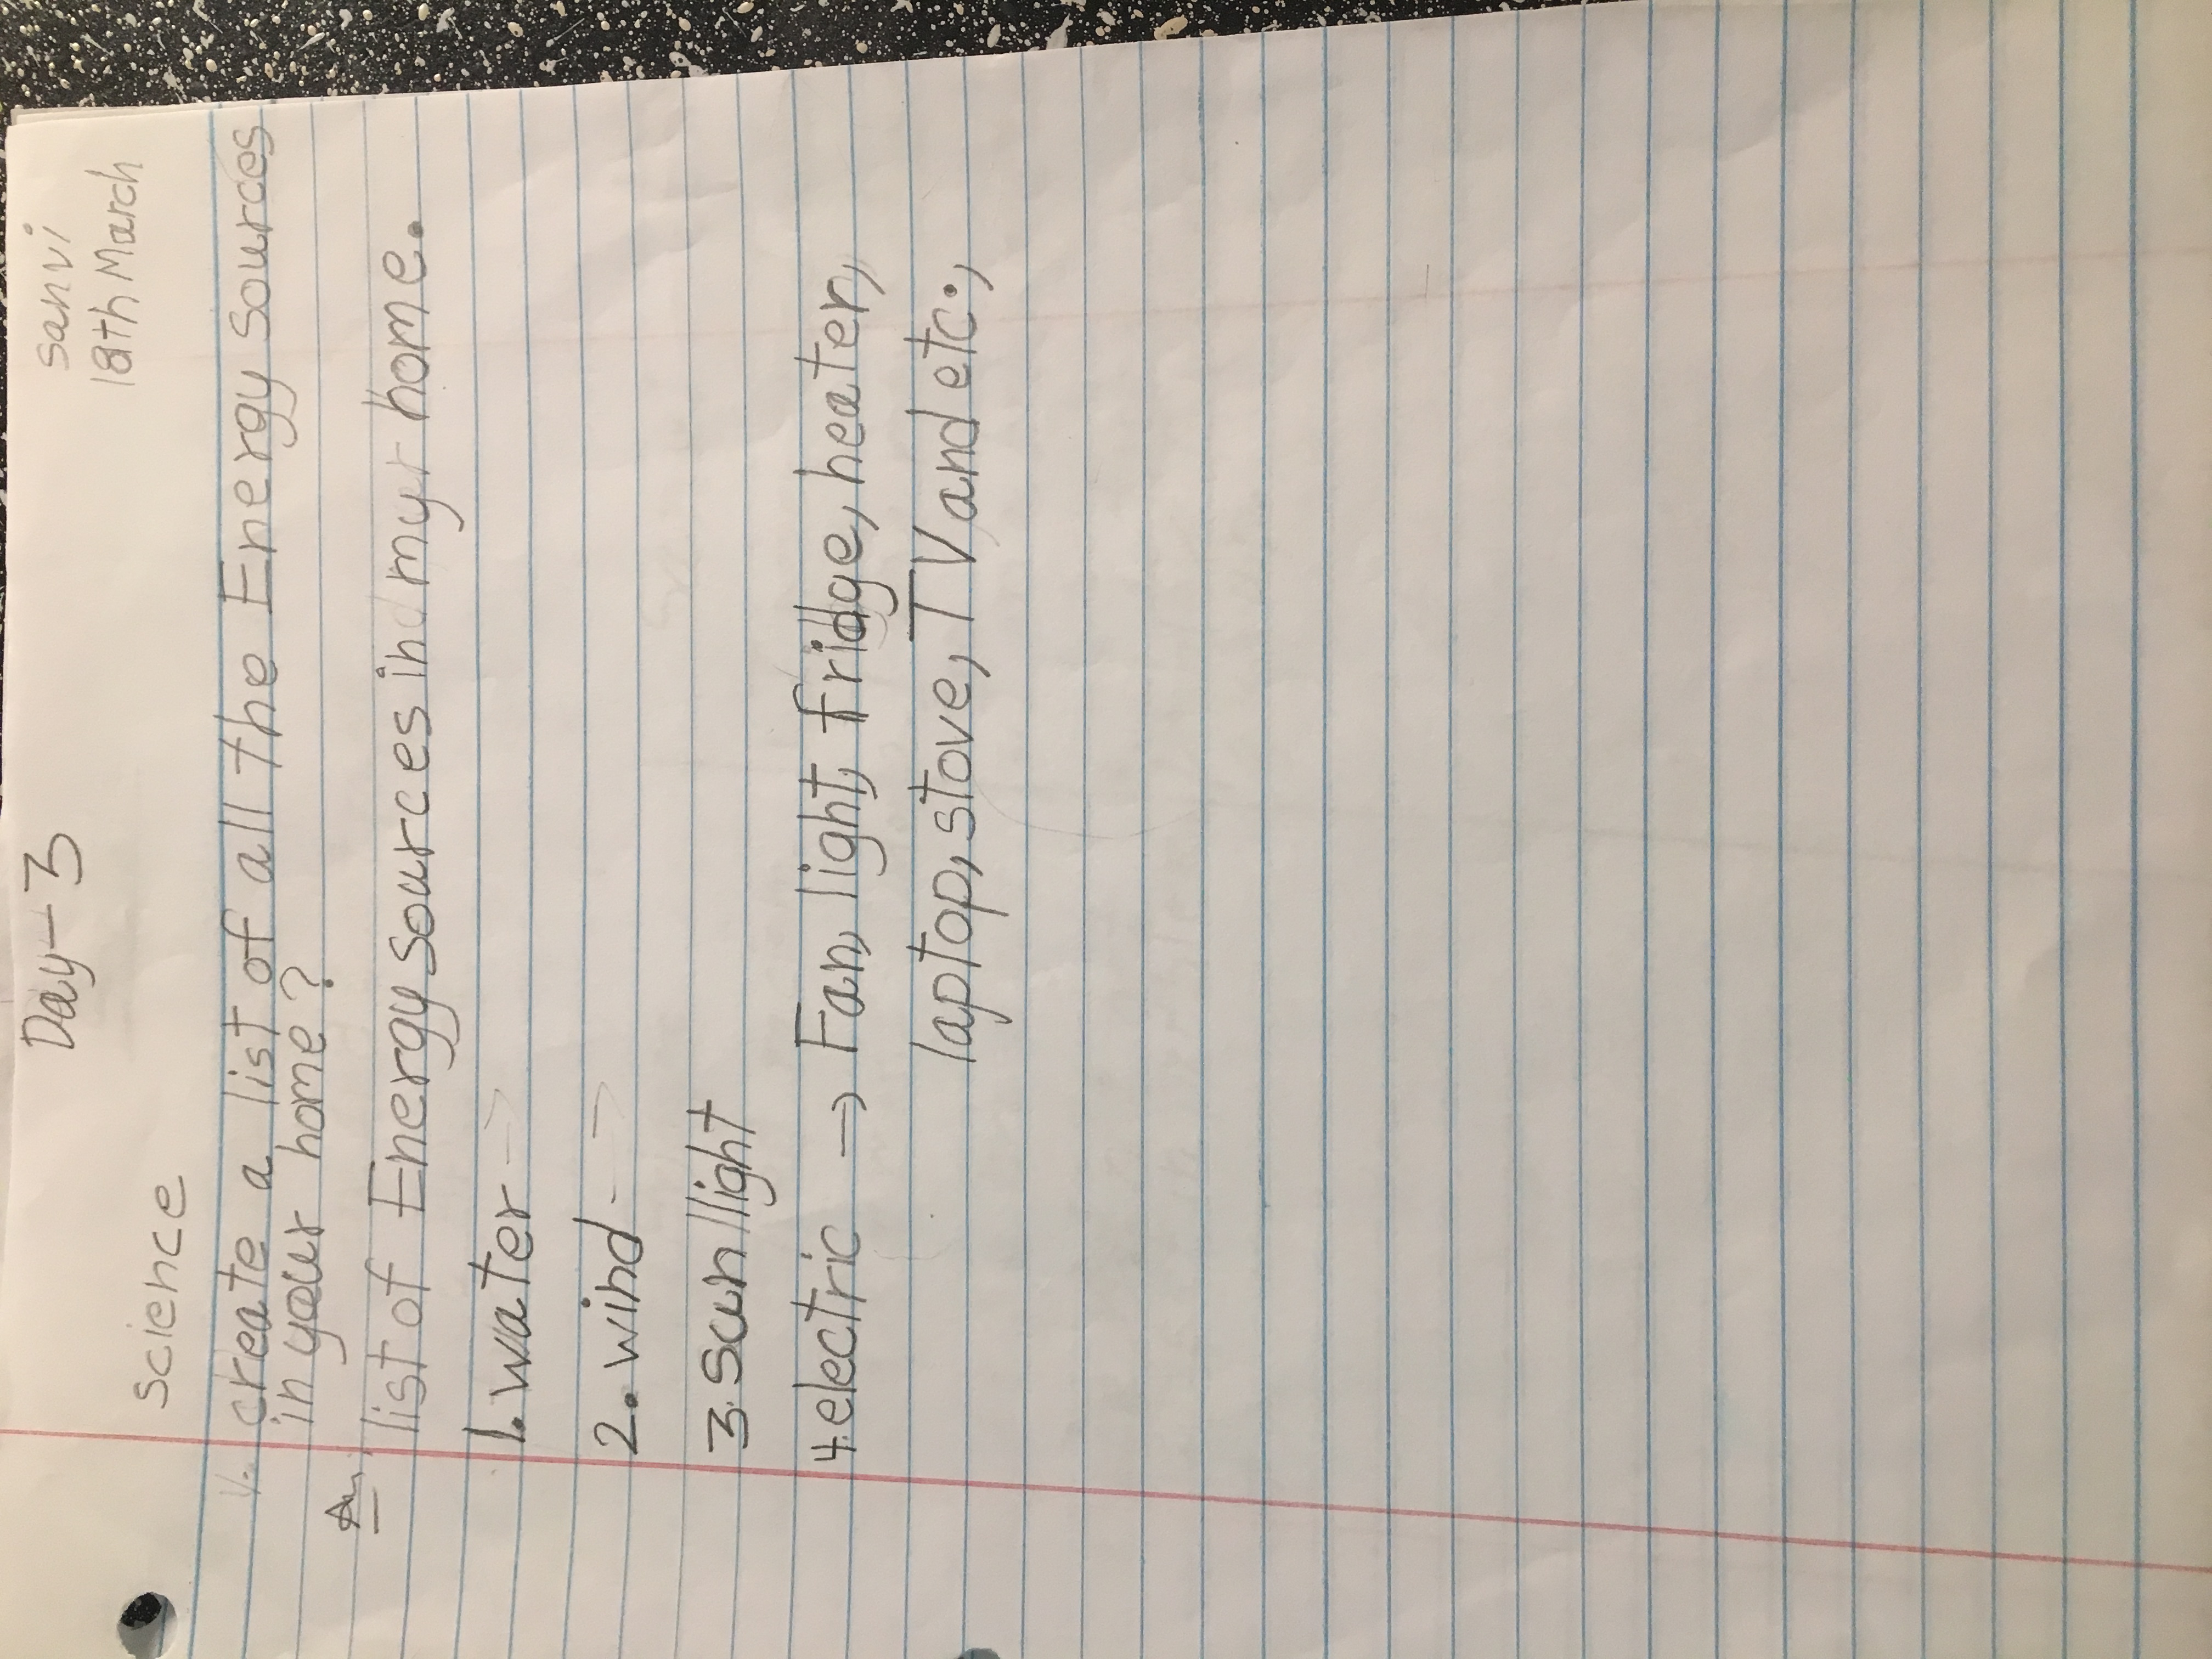 Day-3
sanvi
18th March
science
1. create a list of all the Energy sources
in your home?
An
list of Energy sources in my home.
1. water →
2. wind - →
3. sun/light
4. electric → Fan, light, fridge, heater,
laptop, stove, TV and etc.,